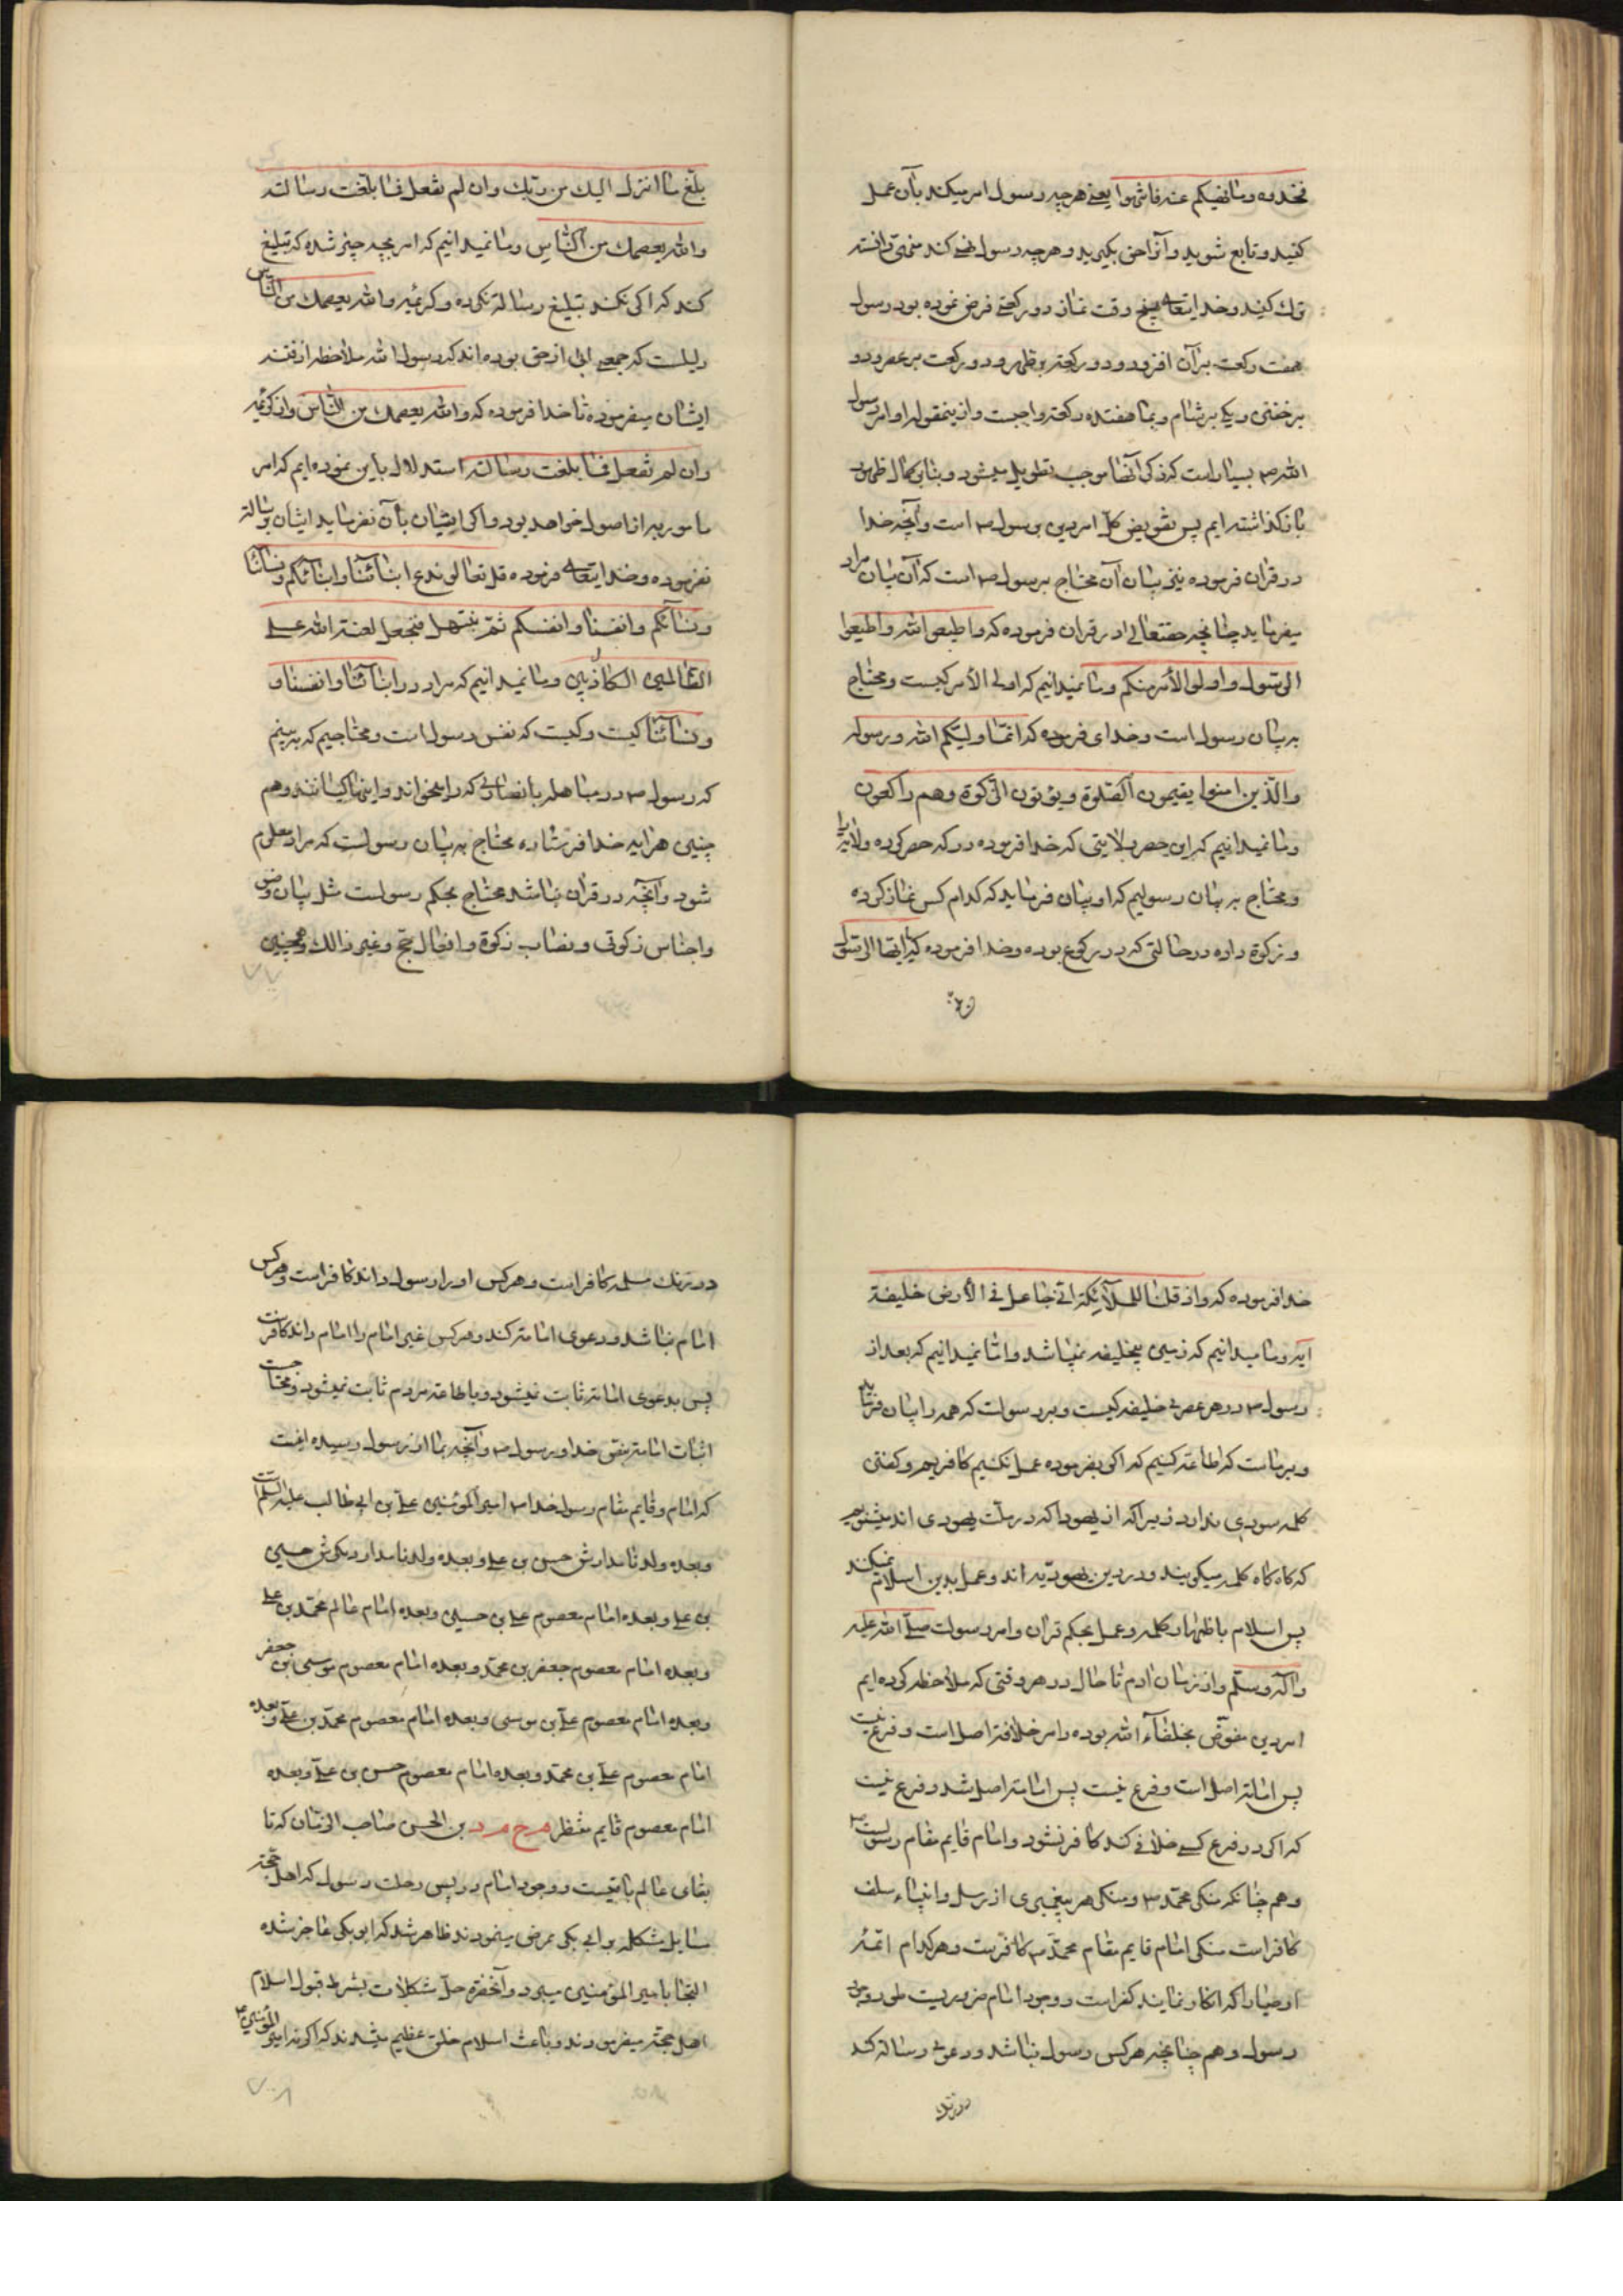 فخذوه وما نهیکم عنه فانتهوا یعنی هرچه رسول امر میکند بآن عمل
کنید و تابع شوید و آنرا حق بگیرید و هرچه رسول نهی کند منهی دانسته
ترک کنید و خدایتعالی پنج وقت نماز دو رکعتی فرض نموده بود رسول
هفت رکعت بر آن افزود و دو رکعت بر ظهر و دو رکعت بر عصر و دو
بر خفتن و یکی بر شام و بما هفتده رکعت واجبست و ازینمقوله اوامر رسول
الله ص بسیار است که ذکر آنها موجب تطویل میشود و بنا بر کمال ظهور
باز گذاشته ایم پس تفویض کل امر دین برسول ص است و آنچه خدا
در قران فرموده نیز بیان آن محتاج برسول ص است که آن بیان مراد
میفرماید چنانچه حقتعالی در قران فرموده که واطیعوا الله واطیعوا
الرسول واولو الأمر منکم و ما نمیدانیم که اولی الأمر کیست و محتاج
به بیان رسول است و خدای فرموده که انما ولیکم الله ورسوله
والذین امنوا یقیمون الصلوة ویؤتون الزکوة وهم راکعون
و ما نمیدانیم که این حصر بولایتی که خدا فرموده در که حصر کرده ولایة را
و محتاج به بیان رسولیم که او بیان فرماید که کدام کس نماز کرده
و زکوة داده در حالتی که در رکوع بوده و خدا فرموده که یا ایها الرسول
بلغ ما انزل الیک من ربک وان لم تفعل فما بلغت رسالته
والله یعصمک من الناس و ما نمیدانیم که امر بچه چیز شده که تبلیغ
کند که اگر نکند تبلیغ رسالة نکرده و کریمه والله یعصمک من الناس
دلیلست که جمعی ابی از حق بوده اند که رسول الله ملاحظه از فتنه
ایشان میفرموده تا خدا فرموده که والله یعصمک من الناس و از کریمه
وان لم تفعل فما بلغت رسالته استدلال باین نموده ایم که امر
مامور به از اصول خواهد بود و اگر ایشان بآن نفرماید ایشان رسالة
نفرموده و خدایتعالی فرموده قل تعالوا ندع ابنائنا وابنائکم ونسائنا
ونسائکم وانفسنا وانفسکم ثم نبتهل فنجعل لعنة الله علی
الظالمین الکاذبین و ما نمیدانیم که مراد در ابنائنا وانفسنا و
ونسائنا کیست و کیست که نفس رسول است و محتاجیم که به بینم
که رسول ص در مباهله با نصاری که را میخواند و اینها کیانند و هم
چنین هر ایه خدا فرستاده محتاج به بیان رسولست که مراد معلوم
شود و آنچه در قران نباشد محتاج بحکم رسولست مثل بیان
واجناس زکوتی و نصاب زکوة و افعال حج و غیر ذالک و همچنین
خدا فرموده که واذ قلنا للملآئکة انی جاعل فی الأرض خلیفة
ایه و ما میدانیم که زمین بیخلیفه نمیباشد و اما نمیدانیم که بعد از
رسول ص در هر عصری خلیفه کیست و بر رسولست که همه را بیان فرماید
و بر ماست که اطاعة کنیم که اگر بفرموده عمل نکنیم کافریم و گفتن
کلمه سودی ندارد زیرا که از یهودا که در ملت یهودی اند میشنویم
که گاه گاه کلمه میگویند و در دین یهودیه اند و عمل بدین اسلام نمیکنند
پس اسلام باظهار کلمه و عمل بحکم قران و امر رسولست صلی الله علیه
وآله وسلم و از زمان ادم تا حال در هر وقتی که ملاحظه کرده ایم
امر دین مفوض بخلفآء الله بوده و امر خلافة اصل است و فرع نیست
پس امامة اصل است و فرع نیست پس امامة اصل شد و فرع نیست
که اگر در فرع کسی خلافی کند کافر نشود و امام قایم مقام رسولست ص
وهم چنانکه منکر محمد ص و منکر هر پیغمبری از رسل و انبیاء سلف
کافر است منکر امام قایم مقام محمد ص کافرست و هر کدام ائمه
اوصیا را که انکار نمایند کفر است و وجود امام ضروریست
رسول و هم چنانچه هر کس رسول نباشد و دعوی رسالة کند
در رنک مسیلمه کافر است و هر کس او را رسول داند کافر است و هر کس
امام نباشد و دعوی امامة کند و هر کس غیر امام را امام داند کافرست
پس بدعوی امامة ثابت نمیشود و باطاعة مردم ثابت نمیشود و محتاجست
اثبات امامة بنص خدا و رسول ص و آنچه بما از رسول رسیده اینست
که امام و قایم مقام رسول خدا ص امیر المؤمنین علی بن ابی طالب علیه السلم است
و بعده ولد نامدارش حسن بن علی و بعده ولد نامدار دیگرش حسین
بن علی و بعده امام معصوم علی بن حسین و بعده امام عالم محمد بن علی
و بعده امام معصوم جعفر بن محمد و بعده امام معصوم موسی بن جعفر
و بعده امام معصوم علی بن موسی و بعده امام معصوم محمد بن علی و بعده
امام معصوم علی بن محمد و بعده امام معصوم حسن بن علی و بعده
امام معصوم قایم منتظر م ح م د بن الحسن صاحب الزمان که تا
بقای عالم باقیست و وجود امام در پس رحلت رسول که اهل
مسایل مشکله بر ابی بکر عرض مینمودند ظاهر شد که ابو بکر عاجز شده
التجا بامیر المؤمنین میبرد و آنحضرة حل مشکلات بشرط قبول اسلام
اهل میفرمودند و باعث اسلام خلق عظیم میشدند که اگر نه امیر المؤمنین ص